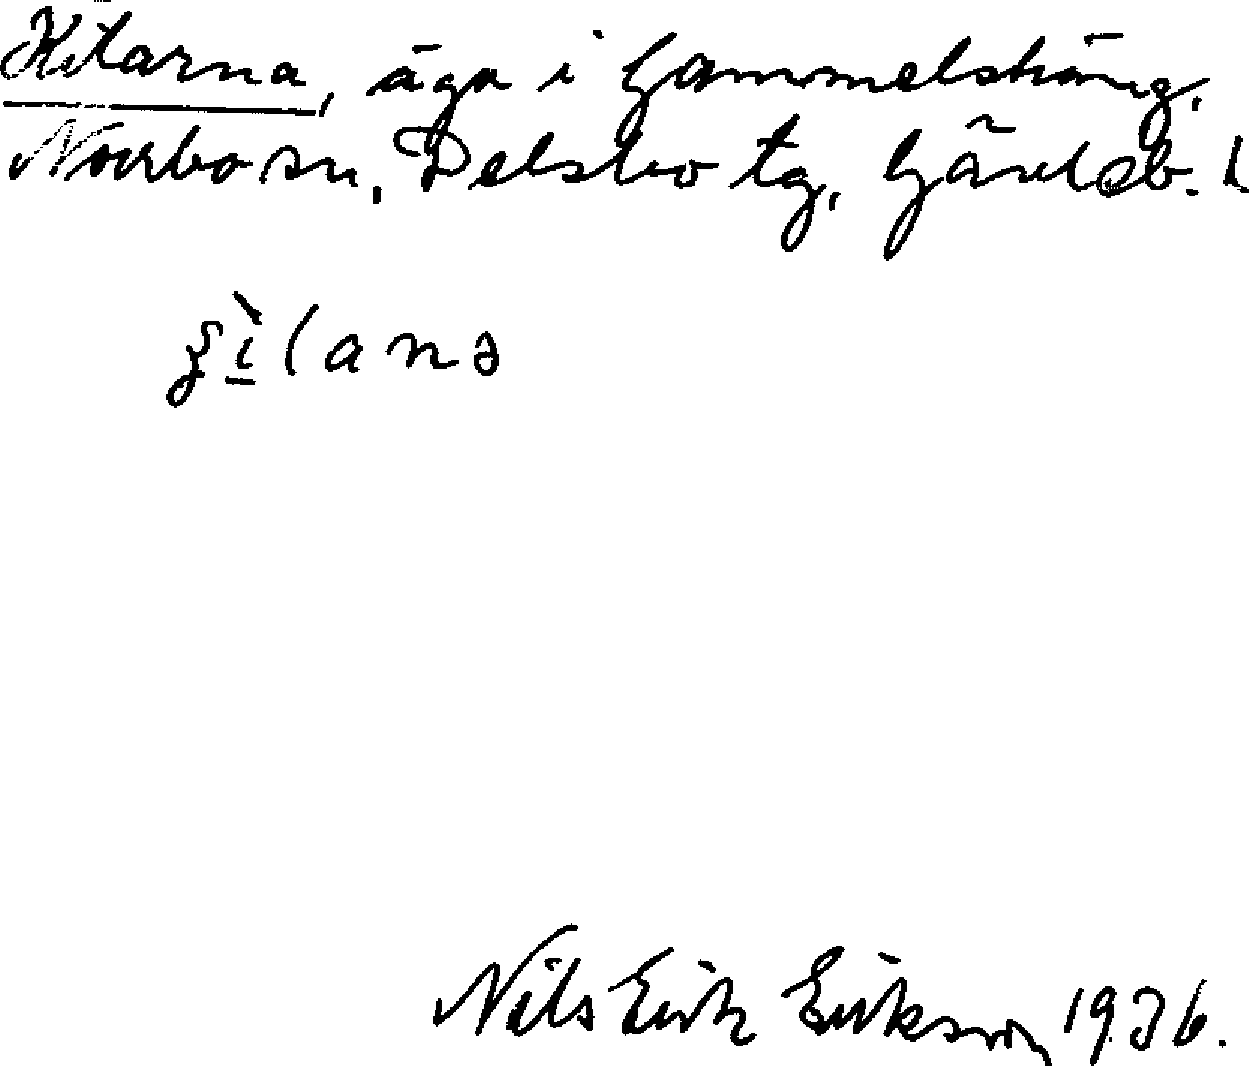 Kilarna, äga i Gammelsträng,
Norrbo sn, Delsbo tg, Gävleb. l.
Nils Erik Eriksson 1936.